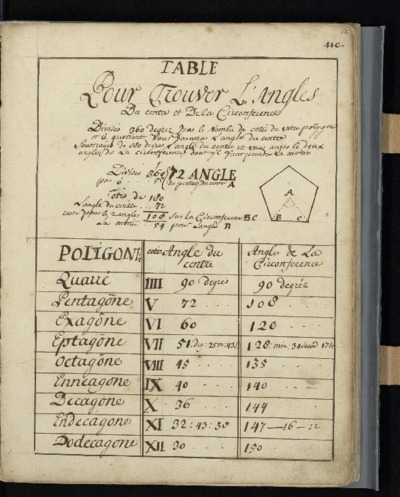 410
TABLE
Pour Trouver L'Angles
Du centre et De la Circonference
Divisés 360 degrez par le Nombre de coté de votre polygone
et le quotient Vous Donnera L'angle du centre
de 180 degrez L'angle du centre et vous aurés le deux
angles de La circonference dont il faut prendre La moitié
Divisés 360 72 ANGLE
par 5 A
A
B C
ôtés de 180
L'angle du centre .. 72
reste pour les 2 angles 108 sur la Circonference BC
La moitié .. 54 pour L'angle B
POLIGONE cotés Angle du centre Angle de La Circonference
Quarré IIII 90 degrés 90 degrés
Pentagône V 72 108
Exagône VI 60 120
Eptagône VII 51 deg: 25m: 43s 128
Octogône VIII 45 135
Enneagône IX 40 140
Decagône X 36 144
Endecagône XI 32:43:38 147-16-22
Dodecagone XII 30 150